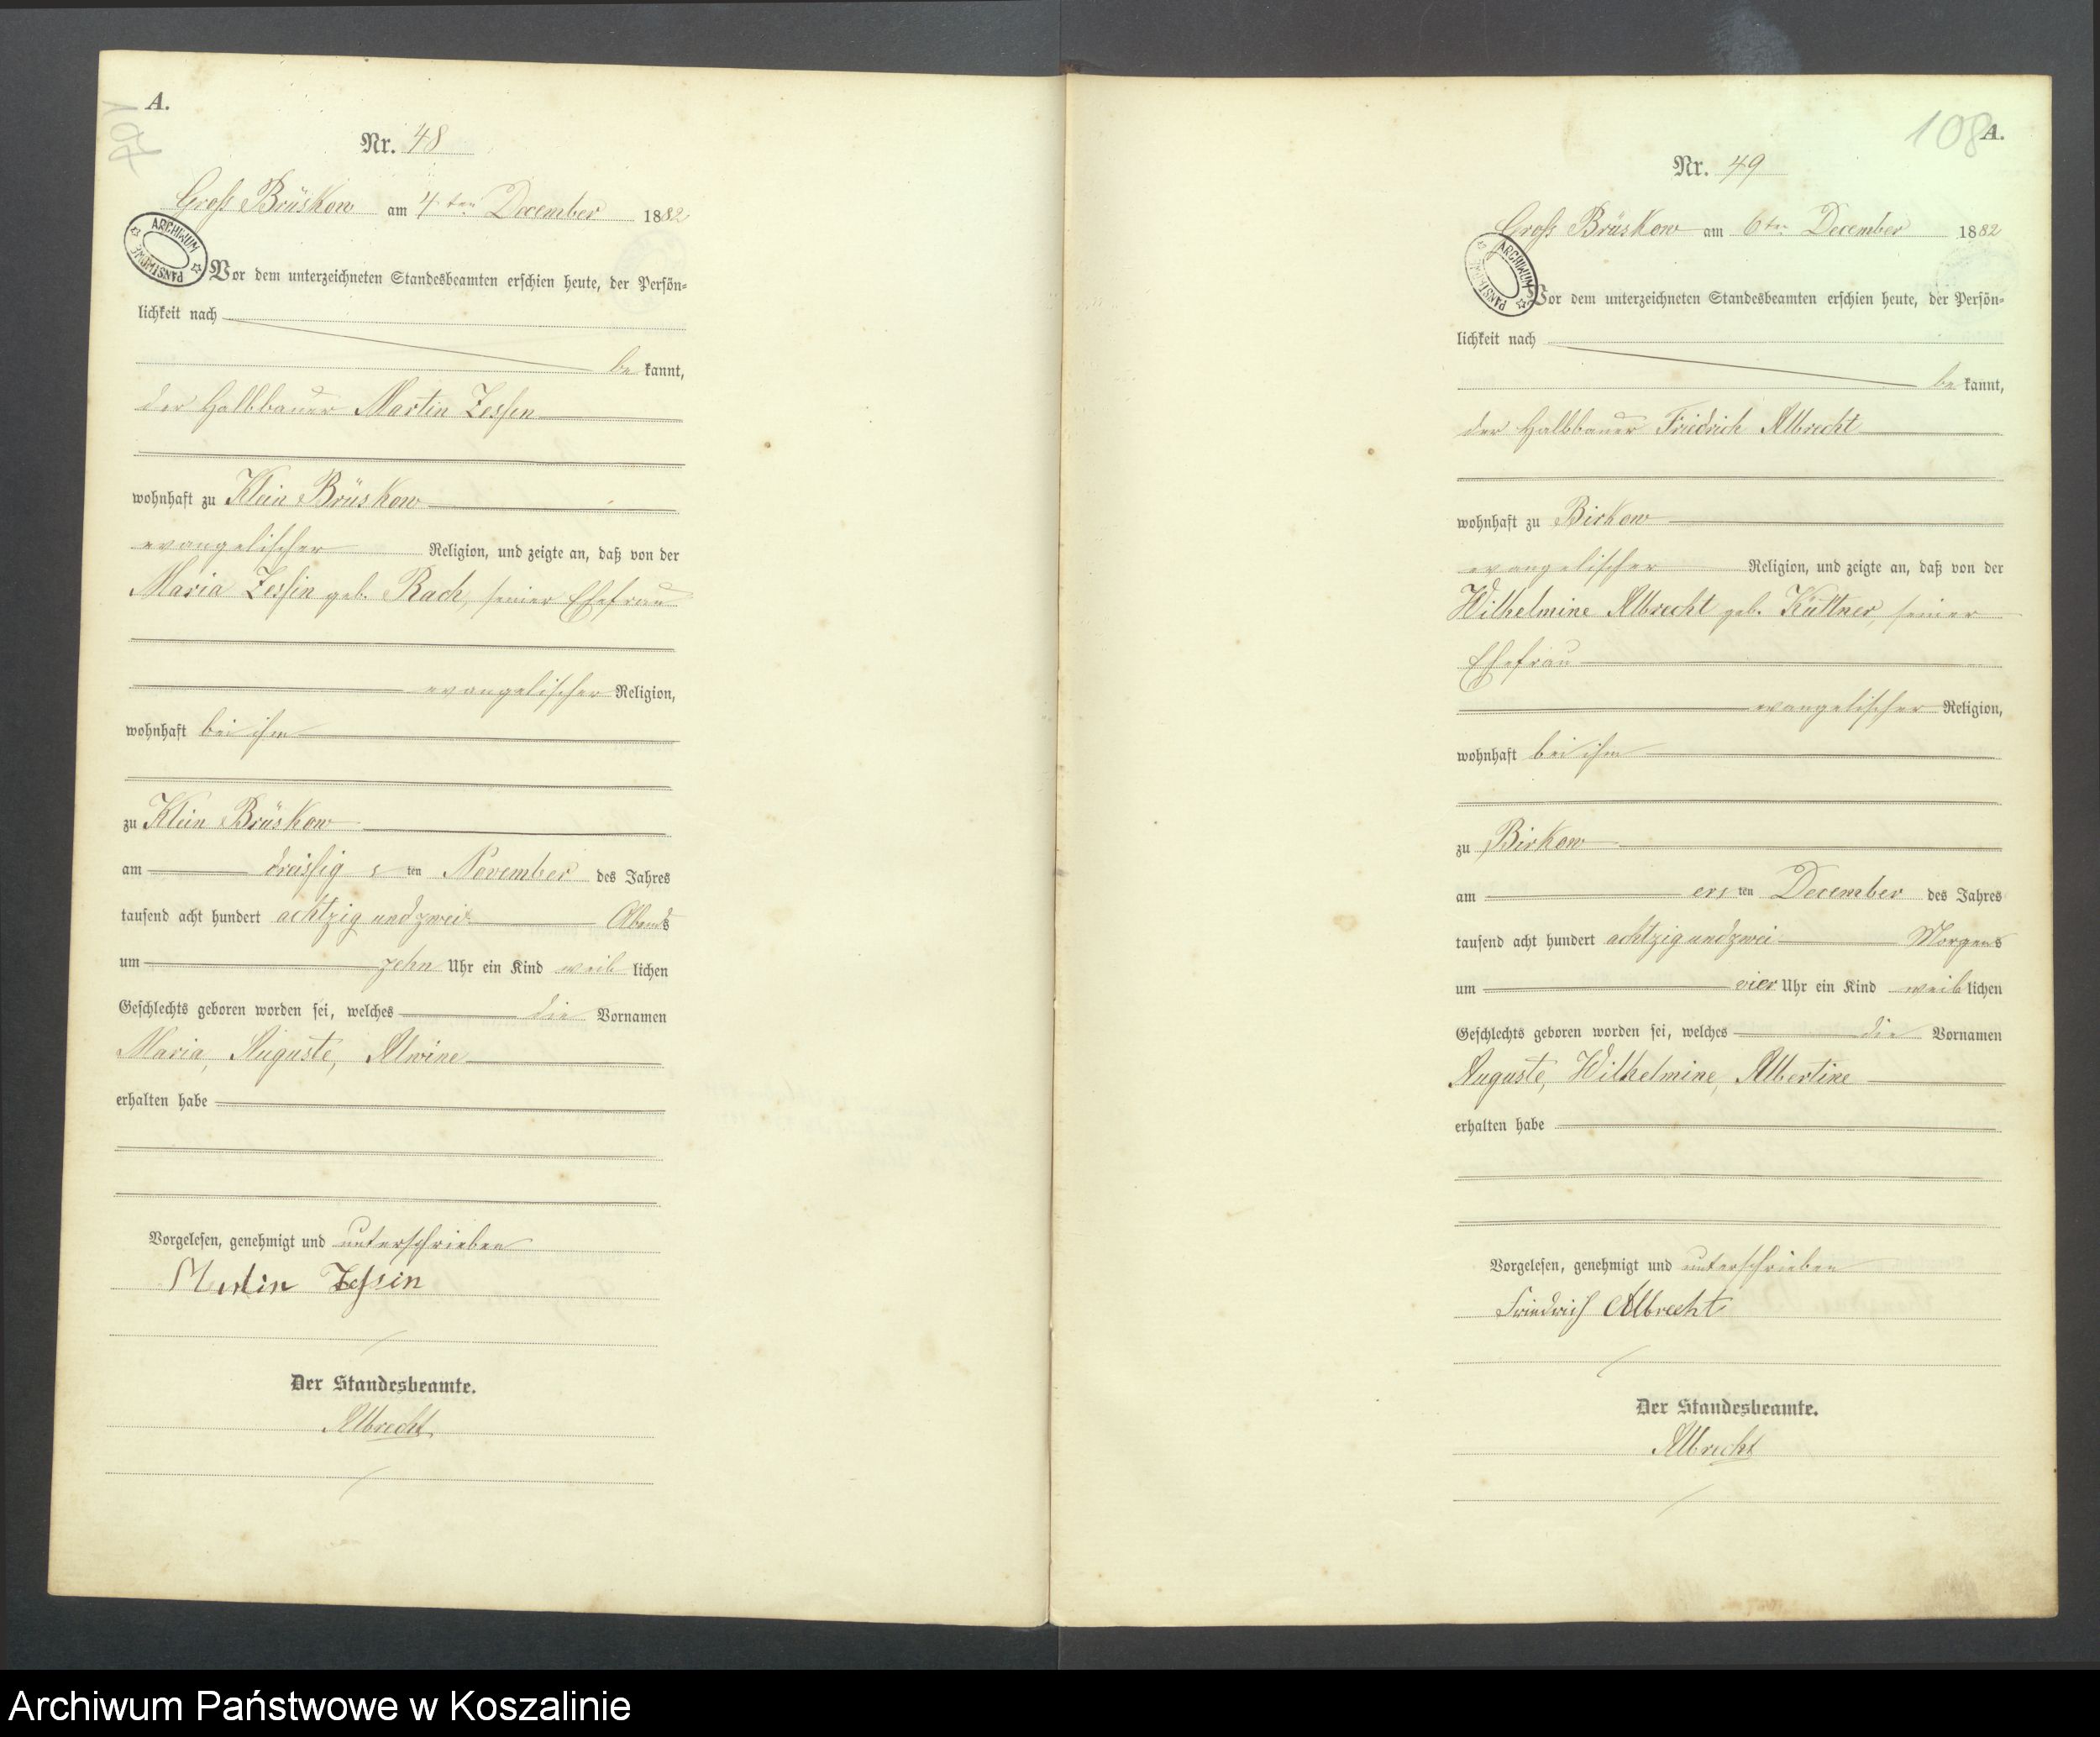 A.
107
Nr. 48
Groß Brüskow am 4ten December 1882
ARCHIWUM PAŃSTWOWE
Vor dem unterzeichneten Standesbeamten erschien heute, der Persön-
lichkeit nach
be kannt,
der Halbbauer Martin Zessin
wohnhaft zu Klein Brüskow
evangelischer Religion, und zeigte an, daß von der
Maria Zessin geb. Rach, seiner Ehefrau
evangelischer Religion,
wohnhaft bei ihm
zu Klein Brüskow
am dreißigsten November des Jahres
tausend acht hundert achtzig und zwei Abends
um zehn Uhr ein Kind weib lichen
Geschlechts geboren worden sei, welches die Vornamen
Maria, Auguste, Alwine
erhalten habe
Vorgelesen, genehmigt und unterschrieben
Martin Zessin
Der Standesbeamte.
Albrecht
108
A.
Nr. 49
Groß Brüskow am 6ten December 1882
ARCHIWUM PAŃSTWOWE
Vor dem unterzeichneten Standesbeamten erschien heute, der Persön-
lichkeit nach
be kannt,
der Halbbauer Friedrich Albrecht
wohnhaft zu Birkow
evangelischer Religion, und zeigte an, daß von der
Wilhelmine Albrecht geb. Küttner, seiner
Ehefrau
evangelischer Religion,
wohnhaft bei ihm
zu Birkow
am ersten December des Jahres
tausend acht hundert achtzig und zwei Morgens
um vier Uhr ein Kind weiblichen
Geschlechts geboren worden sei, welches die Vornamen
Auguste, Wilhelmine, Albertine
erhalten habe
Vorgelesen, genehmigt und unterschrieben
Friedrich Albrecht
Der Standesbeamte.
Albrecht
Archiwum Państwowe w Koszalinie